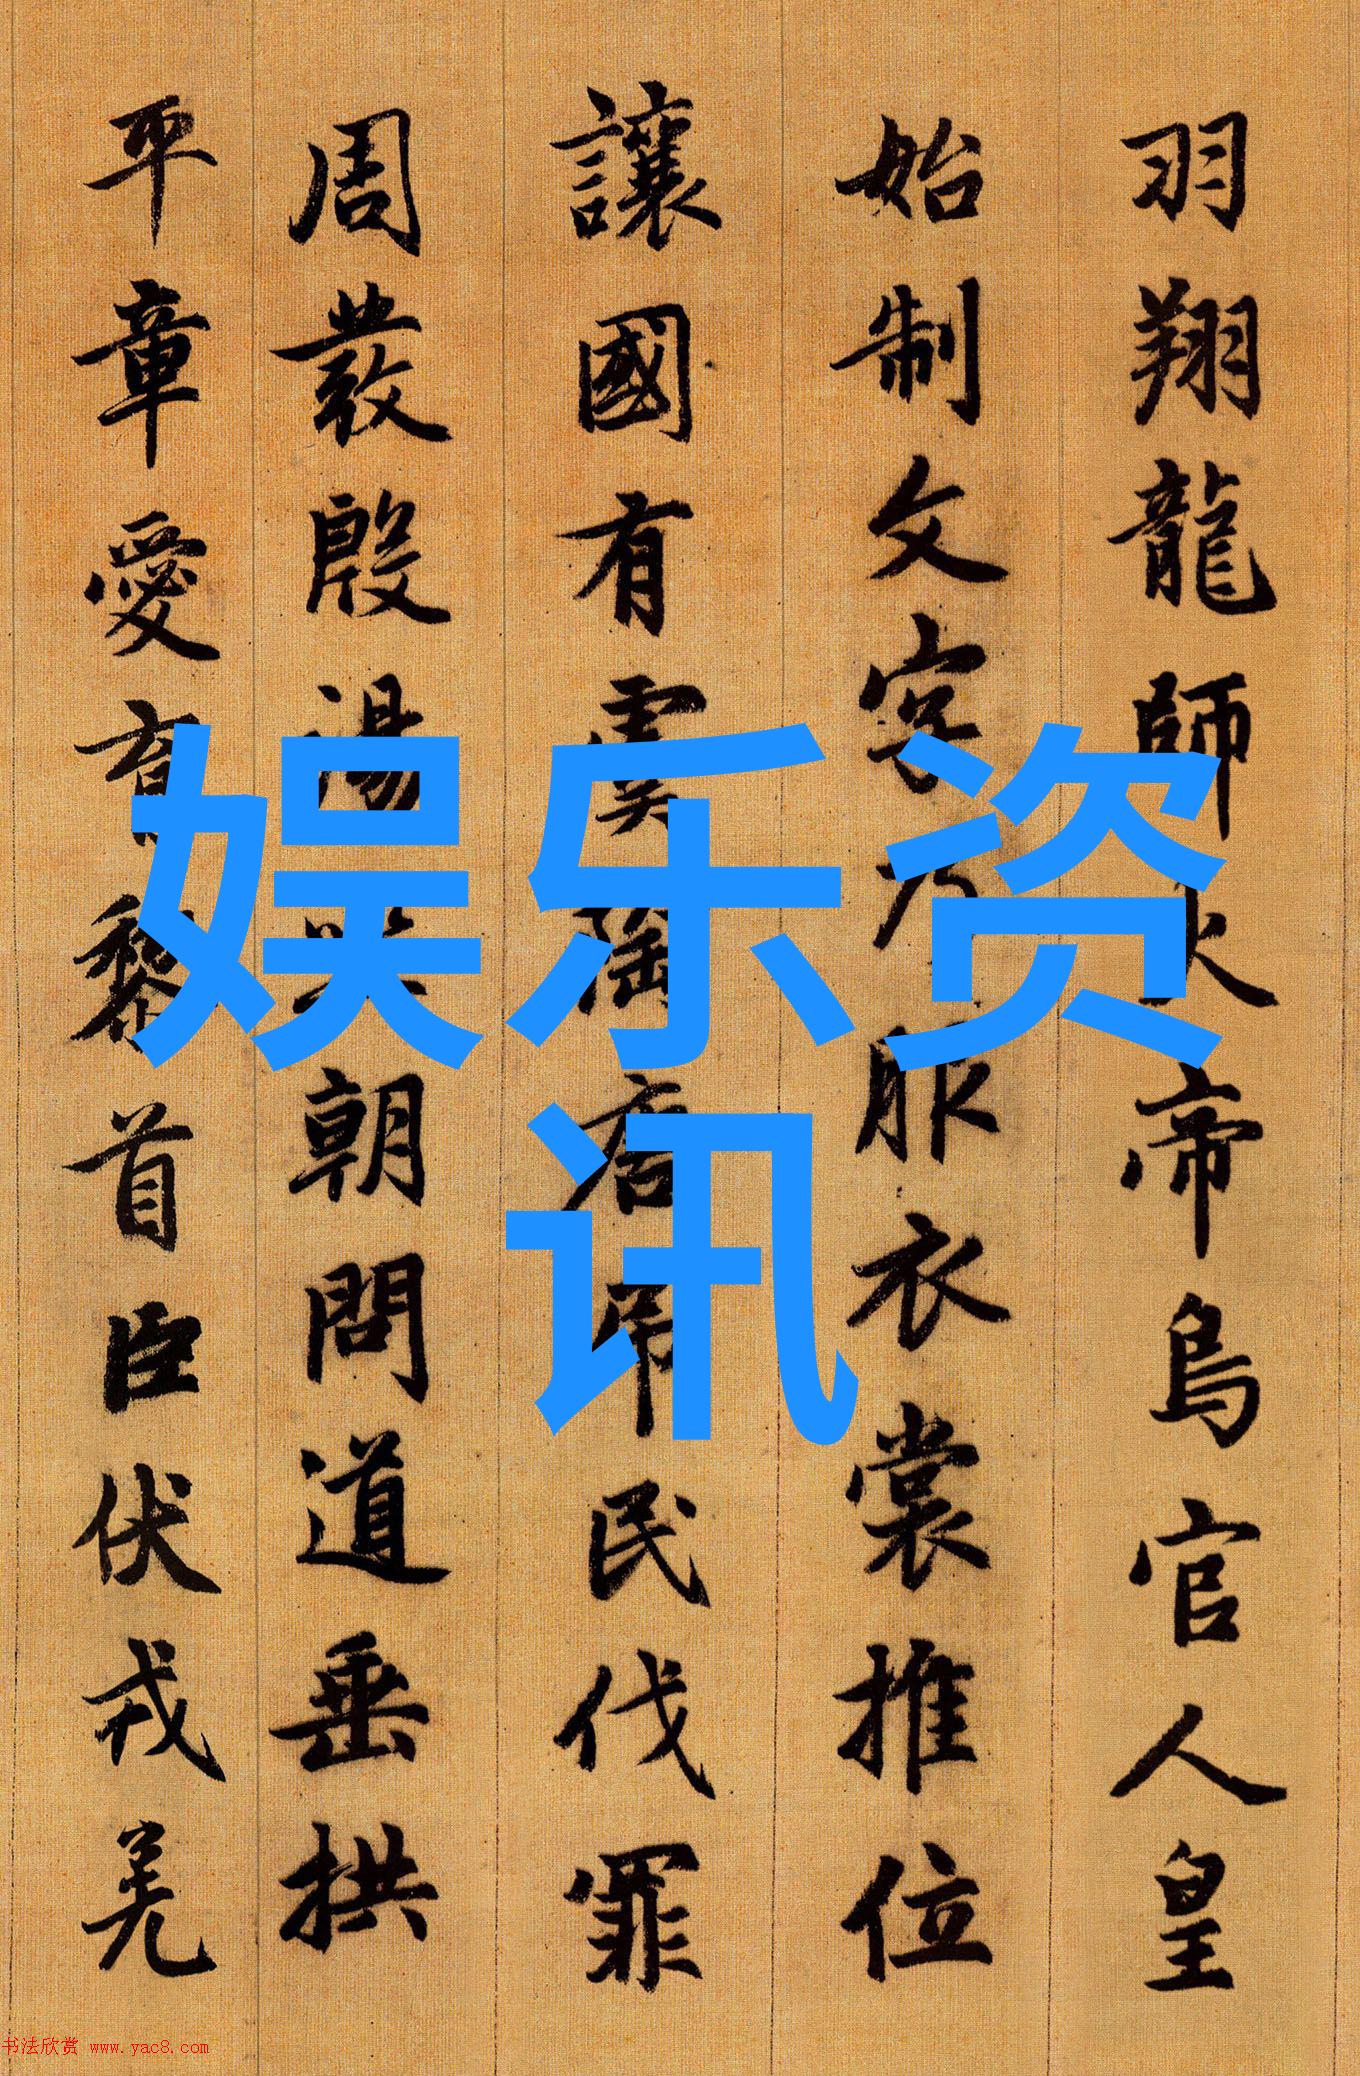 羽翔龍師火帝鳥官人皇
始制文字乃服衣裳推位
讓國有虞陶唐吊民伐罪
周發殷湯坐朝問道垂拱
平章愛育黎首臣伏戎羌
娱乐资
讯
书法欣赏 www.yac8.com